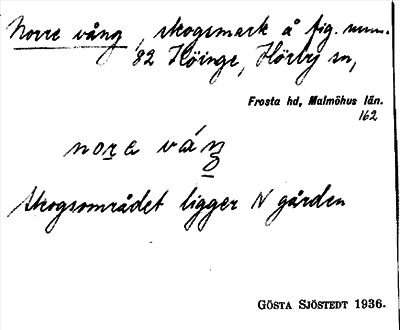 Norre vång, skogsmark å fig. num.
82 Höinge, Hörby sn,
Frosta hd, Malmöhus län.
162
nore váŋ
Skogsområdet ligger N gården
GÖSTA SJÖSTEDT 1936.